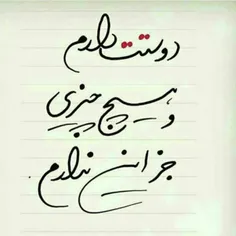 دوستت دارم
و هیچ چیزی
جز این ندارم.